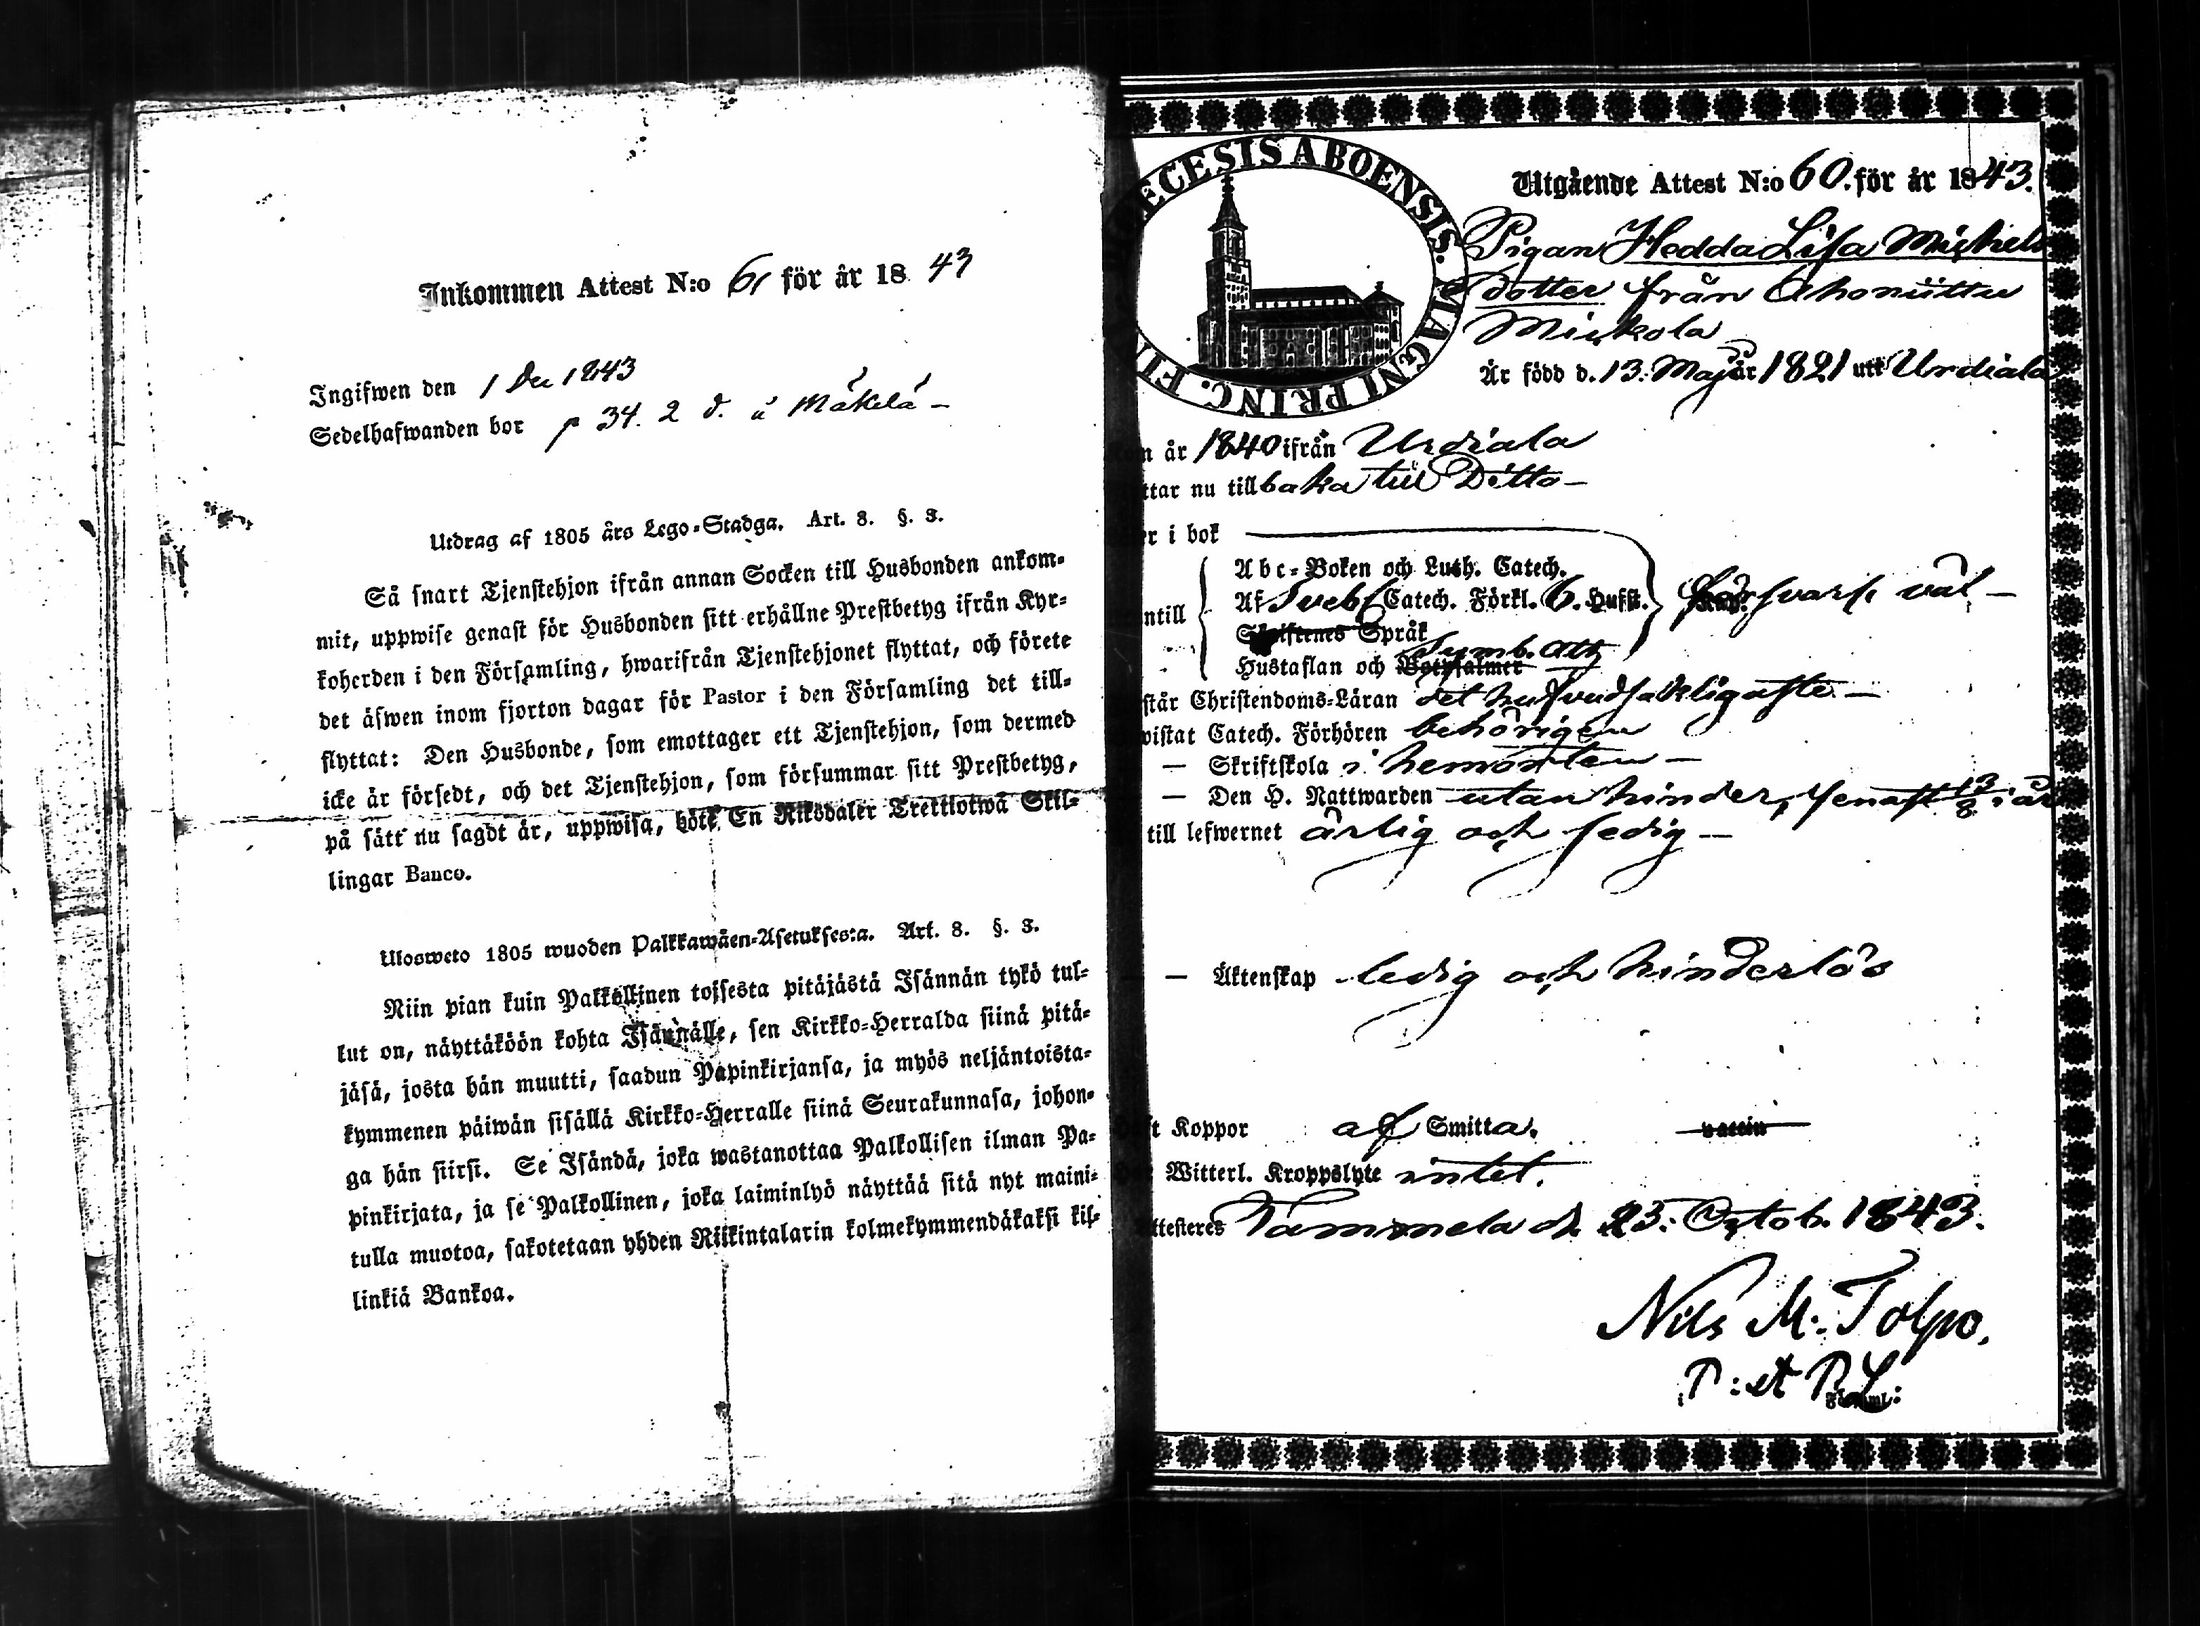 Inkommen Attest N:o 61 för år 1843
Ingifwen den 1 De 1843
Sedelhafwanden bor p 34. 2 d. å Mäkelä –
Utdrag af 1805 års Lego-Stadga. Art. 8. §. 3.
Så snart Tjenstehjon ifrån annan Socken till Husbonden ankom-
mit, uppwise genast för Husbonden sitt erhållne Prestbetyg ifrån Kyr-
koherden i den Församling, hwarifrån Tjenstehjonet flyttat, och förete
det äfwen inom fjorton dagar för Pastor i den Församling det till-
flyttat: Den Husbonde, som emottager ett Tjenstehjon, som dermed
icke är försedt, och det Tjenstehjon, som försummar sitt Prestbetyg,
på sätt nu sagdt är, uppwisa, böte En Riksdaler Trettiotwå Skil-
lingar Banco.
Ulosweto 1805 wuoden Palkkawäen-Asetuksesta. Art. 8. §. 3.
Niin pian kuin Palkollinen toisesta pitäjästä Isännän tykö tul-
lut on, näyttäköön kohta Isännälle, sen Kirkko-Herralda siinä pitä-
jäsä, josta hän muutti, saadun Papinkirjansa, ja myös neljäntoista-
kymmenen päiwän sisällä Kirkko-Herralle siinä Seurakunnasa, johon-
ga hän siirsi. Se Isändä, joka wastanottaa Palkollisen ilman Pa-
pinkirjata, ja se Palkollinen, joka laiminlyö näyttää sitä nyt maini-
tulla muotoa, sakotetaan yhden Riikintalarin kolmekymmendäkaksi kil-
linkiä Bankoa.
ECESIS ABOENSIS. MAGNI PRINC. FIN
Utgående Attest N:o 60. för år 1843.
Pigan Hedda Lisa Michels
dotter från Ahoniittu
Mickola
Är född d. 13. Maji år 1821 uti Urdiala
år 1840 ifrån Urdiala
ttar nu tillbaka till Ditto –
r i bok
ntill
Abc-Boken och Luth. Catech.
Af Sveb. Catech. Förkl. 6. Hufst. försvarl. väl –
Skriftenes Språk
Symb. Ath
Hustaflan och Botpsalmer
står Christendoms-Läran det hufvudsakligaste –
wistat Catech. Förhören behörigen
– Skriftskola i hemorten –
– Den H. Nattwarden utan hinder, senast 13/8 i år
till lefwernet ärlig och sedig –
– Äktenskap ledig och hinderlös
ft Koppor af Smitta. vaccin
Witterl. Kroppslyte intet.
ttesteres Tammela d. 23. Octob. 1843.
Nils M. Tolpo.
P: et P. L: